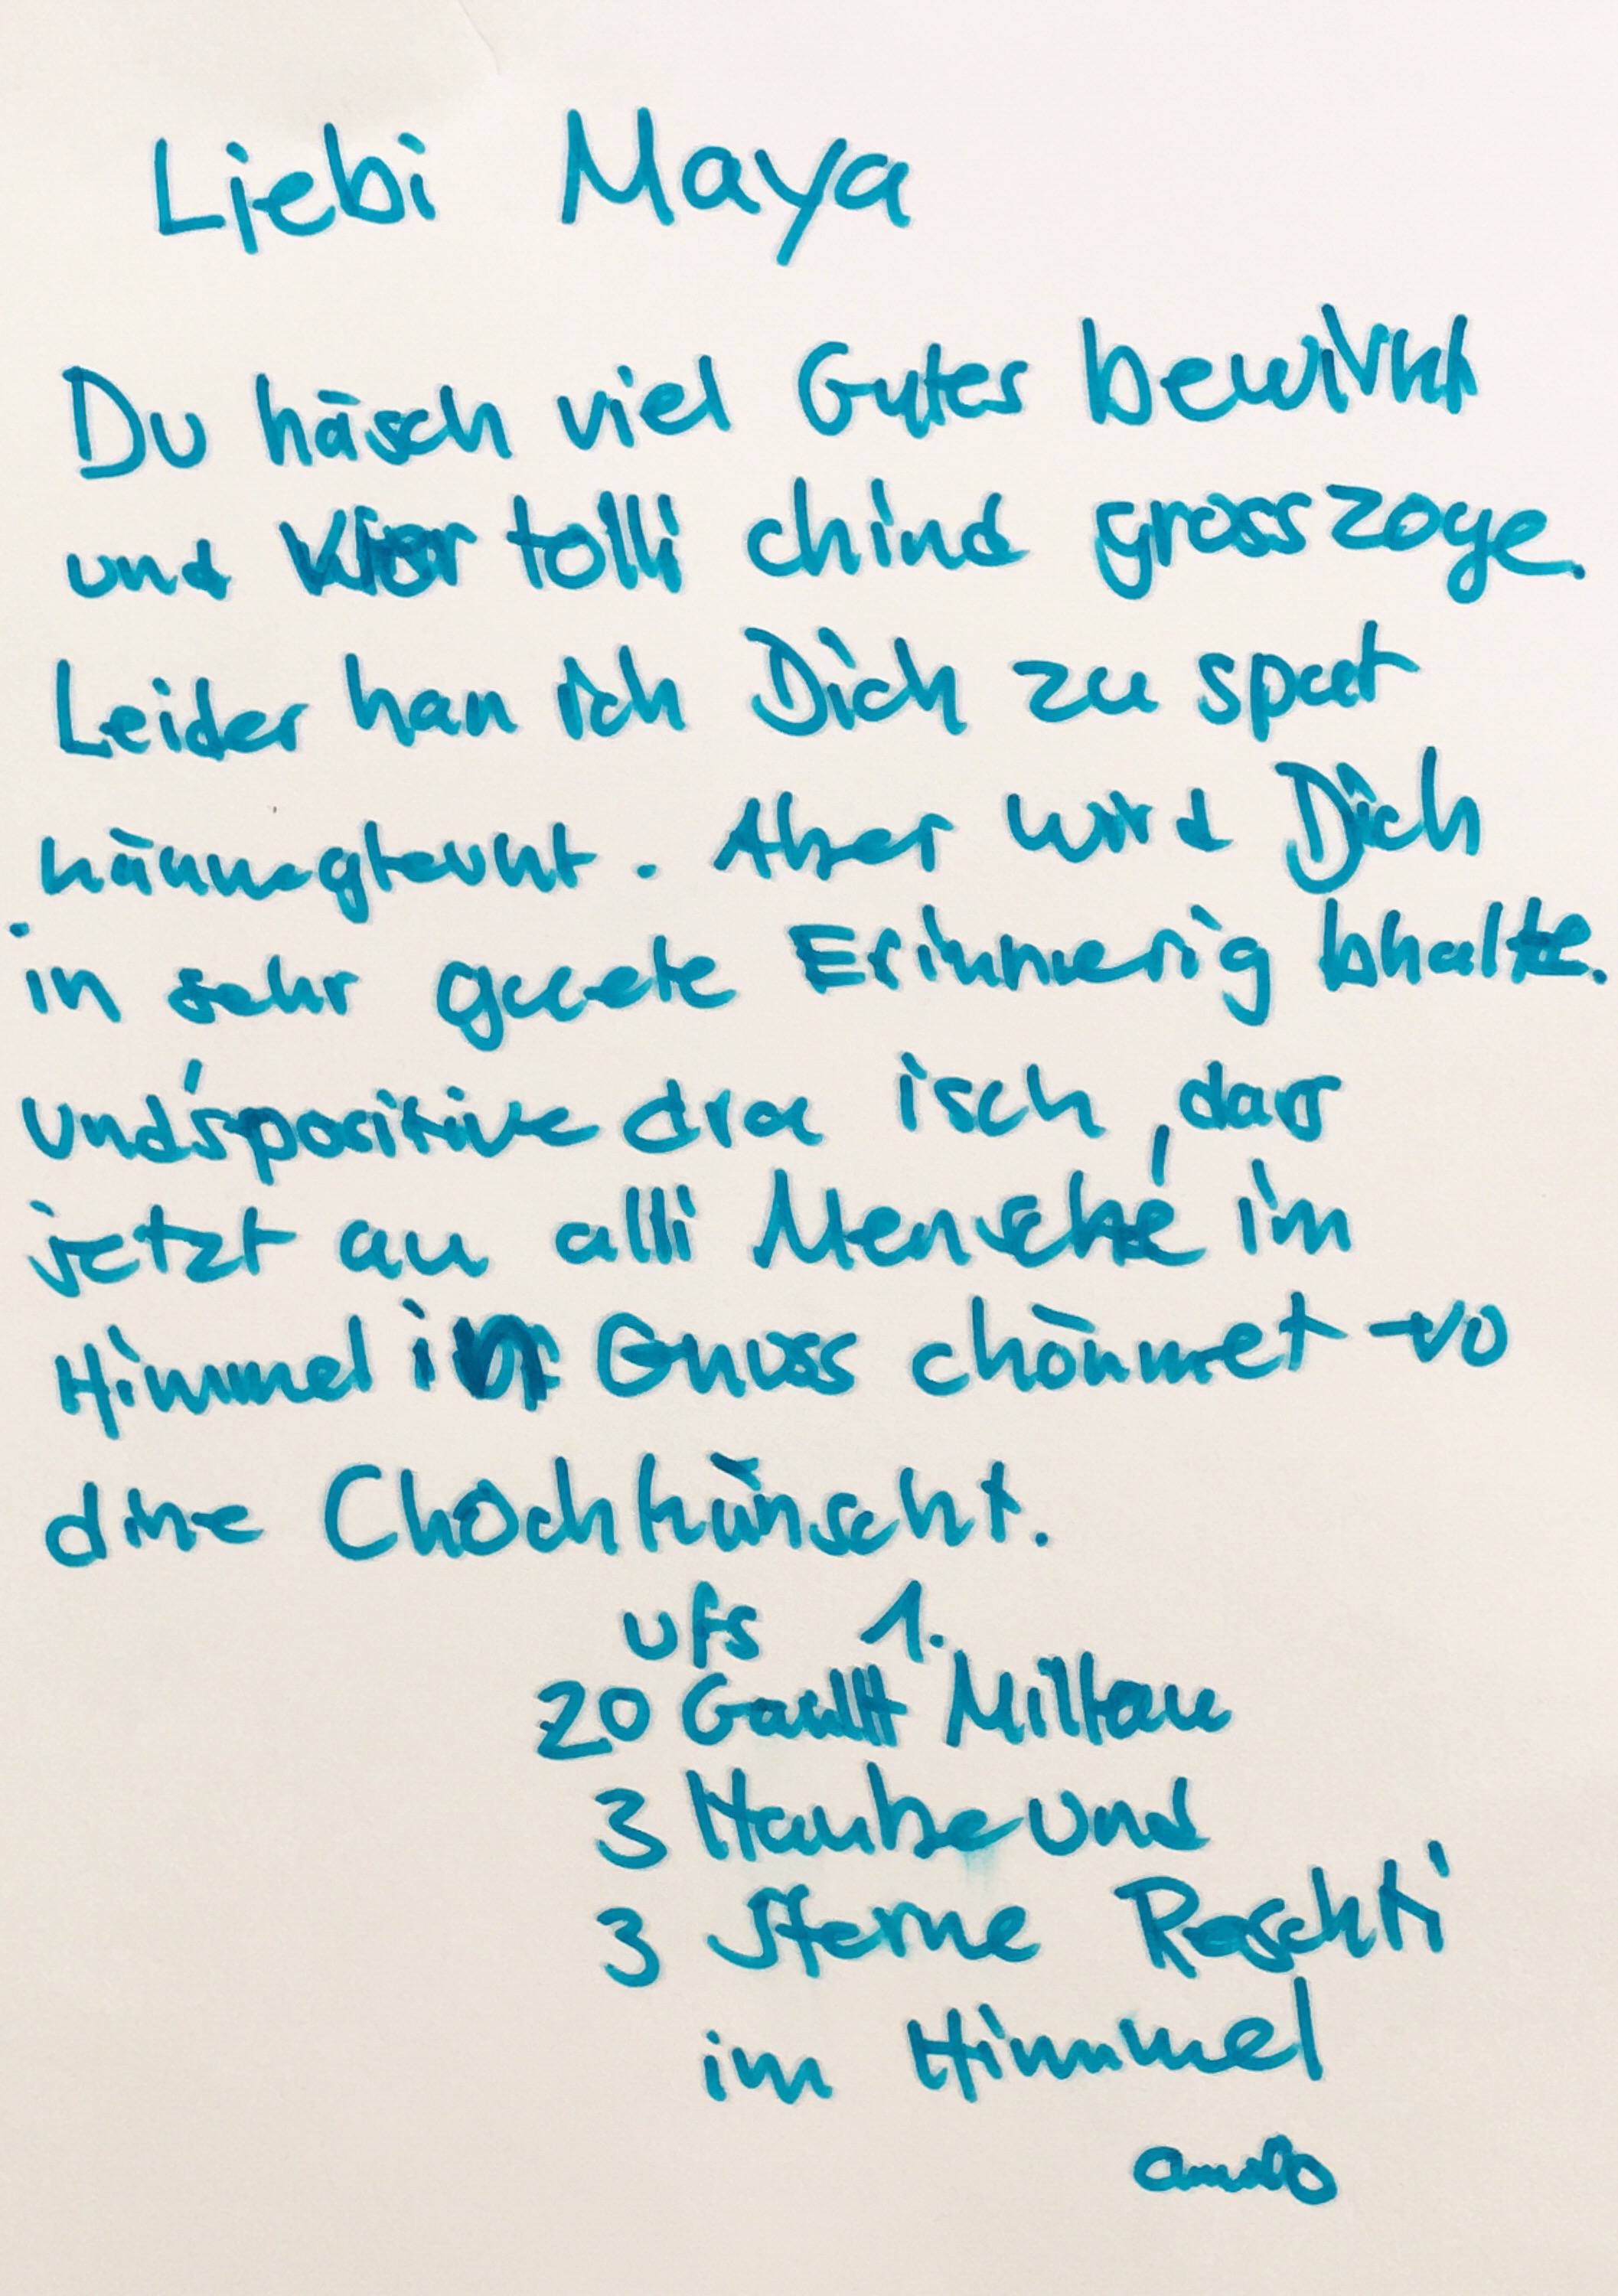 Liebi Maya
Du häsch viel Gutes bewirkt
und vier tolli chind grosszoge.
Leider han ich Dich zu spat
kännegleernt. Aber wird Dich
in sehr guete Erinnerig bhalte.
Und's positive dra isch, dass
jetzt au alli Mensche im
Himmel in Gnuss chömmet vo
dine Chochkünscht.
ufs 1.
20 Gault Millau
3 Haube und
3 Sterne Reschti
im Himmel